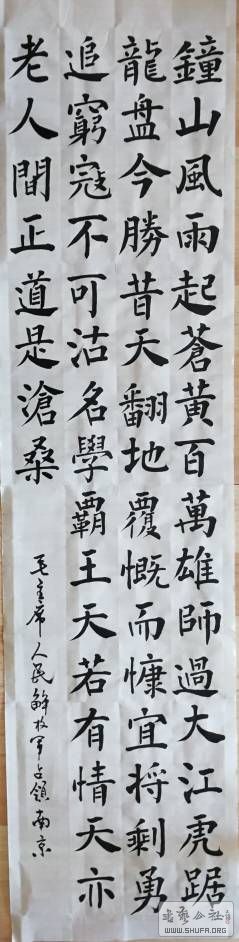 鐘山風雨起蒼黃百萬雄師過大江虎踞
龍盘今勝昔天翻地覆慨而慷宜将剩勇
追窮寇不可沽名學霸王天若有情天亦
老人間正道是滄桑
毛主席人民解放軍占領南京
書藝公社
WWW.SHUFA.ORG